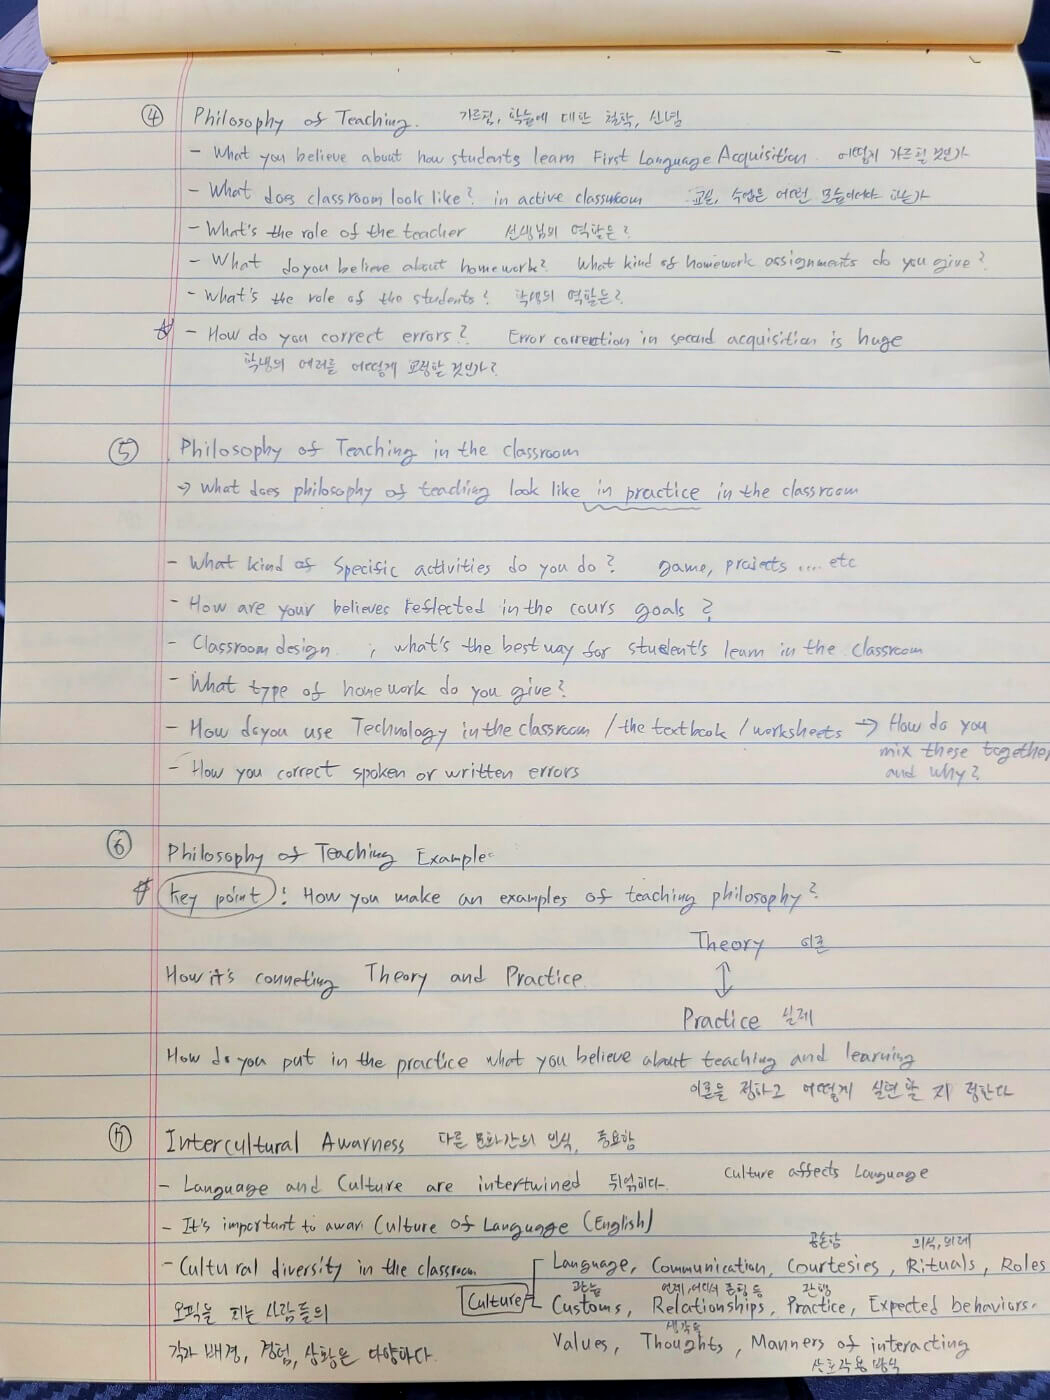 ④ Philosophy of Teaching. 가르침, 학습에 대한 철학, 신념
- What you believe about how students learn First Language Acquisition. 어떻게 가르칠 것인가
- What does classroom look like? in active classroom 교실, 수업은 어떤 모습이어야 하는가
- What's the role of the teacher 선생님의 역할은?
- What do you believe about homework? What kind of homework assignments do you give?
- What's the role of the students? 학생의 역할은?
☆ - How do you correct errors? Error correction in second acquisition is huge
학생의 에러를 어떻게 교정할 것인가?
⑤ Philosophy of Teaching in the classroom
→ What does philosophy of teaching look like in practice in the classroom
- What kind of specific activities do you do? game, projects .... etc
- How are your believes reflected in the cours goals?
- Classroom design. ; what's the best way for student's learn in the classroom
- What type of homework do you give?
- How do you use Technology in the classroom / the textbook / worksheets → How do you
mix these together
and why?
- How you correct spoken or written errors
⑥ Philosophy of Teaching Example:
☆ Key point : How you make an examples of teaching philosophy?
Theory 이론
How it's conneting Theory and Practice.
↕
Practice 실제
How do you put in the practice what you believe about teaching and learning
이론을 정하고 어떻게 실현할 지 정한다
⑦ Intercultural Awarness 다른 문화간의 인식, 중요함
- Language and Culture are intertwined 뒤얽히다. Culture affects Language
- It's important to awar Culture of Language (English)
공손함 의식, 의례
- Cultural diversity in the classroom Language, Communication, Courtesies, Rituals, Roles
언제, 어디서 관행
오픽을 Culture Customs, Relationships, Practice, Expected behaviors.
생각들
각자 배경, 경험, 상황은 다양하다. Values, Thoughts, Manners of interacting
상호작용 방식